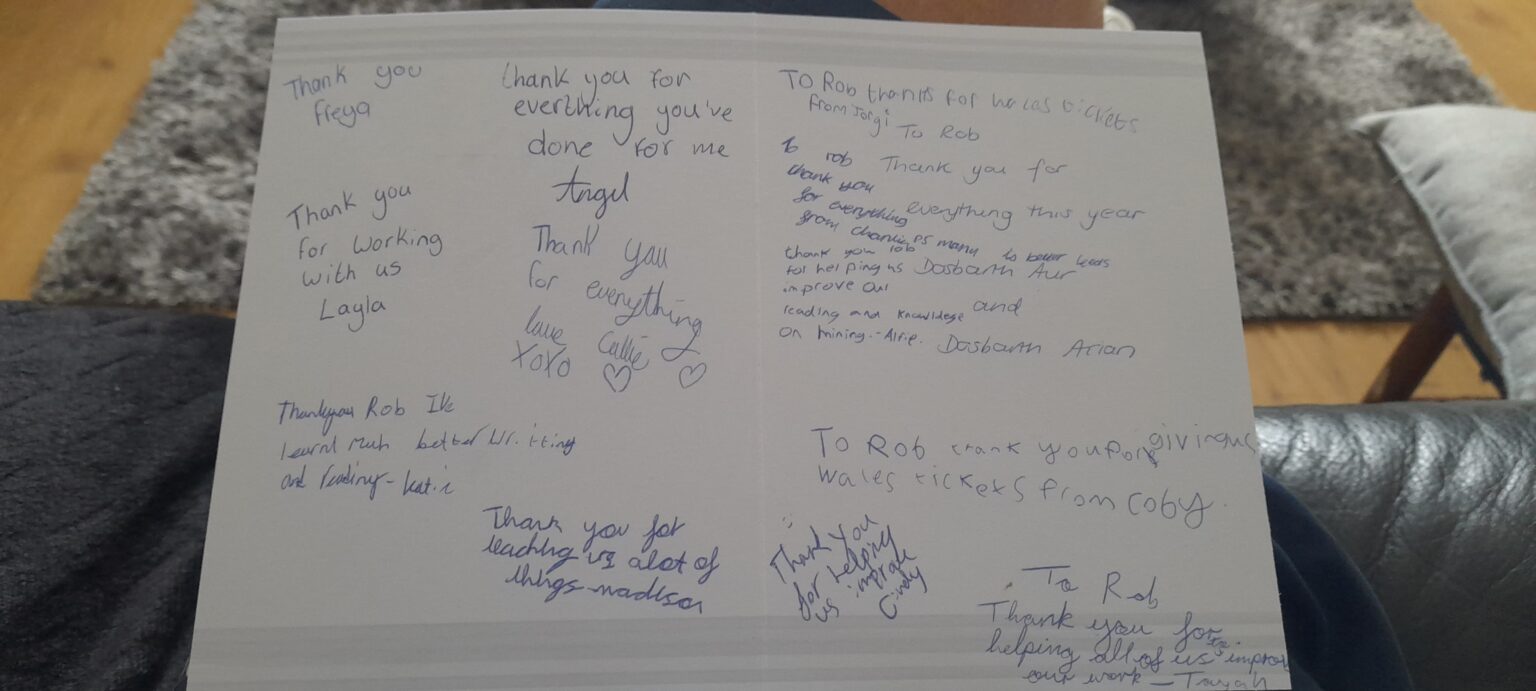 Thank you
Freya
Thank you
for working
with us
Layla
Thankyou Rob I've
learnt much better wr.itting
and reading - katie
thank you for
everthing you've
done for me
Angel
Thank you
for everything
love Callie
xoxo
Thank you for
teaching us alot of
things - madison
To Rob thanks for wales tickets
from Jorgi
To Rob
Thank you for
everything this year
Dosbarth Aur
and
Dosbarth Arian
To rob
thank you
for everything
from
thank you rob
for helping us
improve our
reading and knowledge
on mining. - Alfie.
To Rob thank you for giving us
wales tickets from coby.
Thank you
for helping
us improve
Cindy
To Rob
Thank you for
helping all of us improv
our work - Tayah